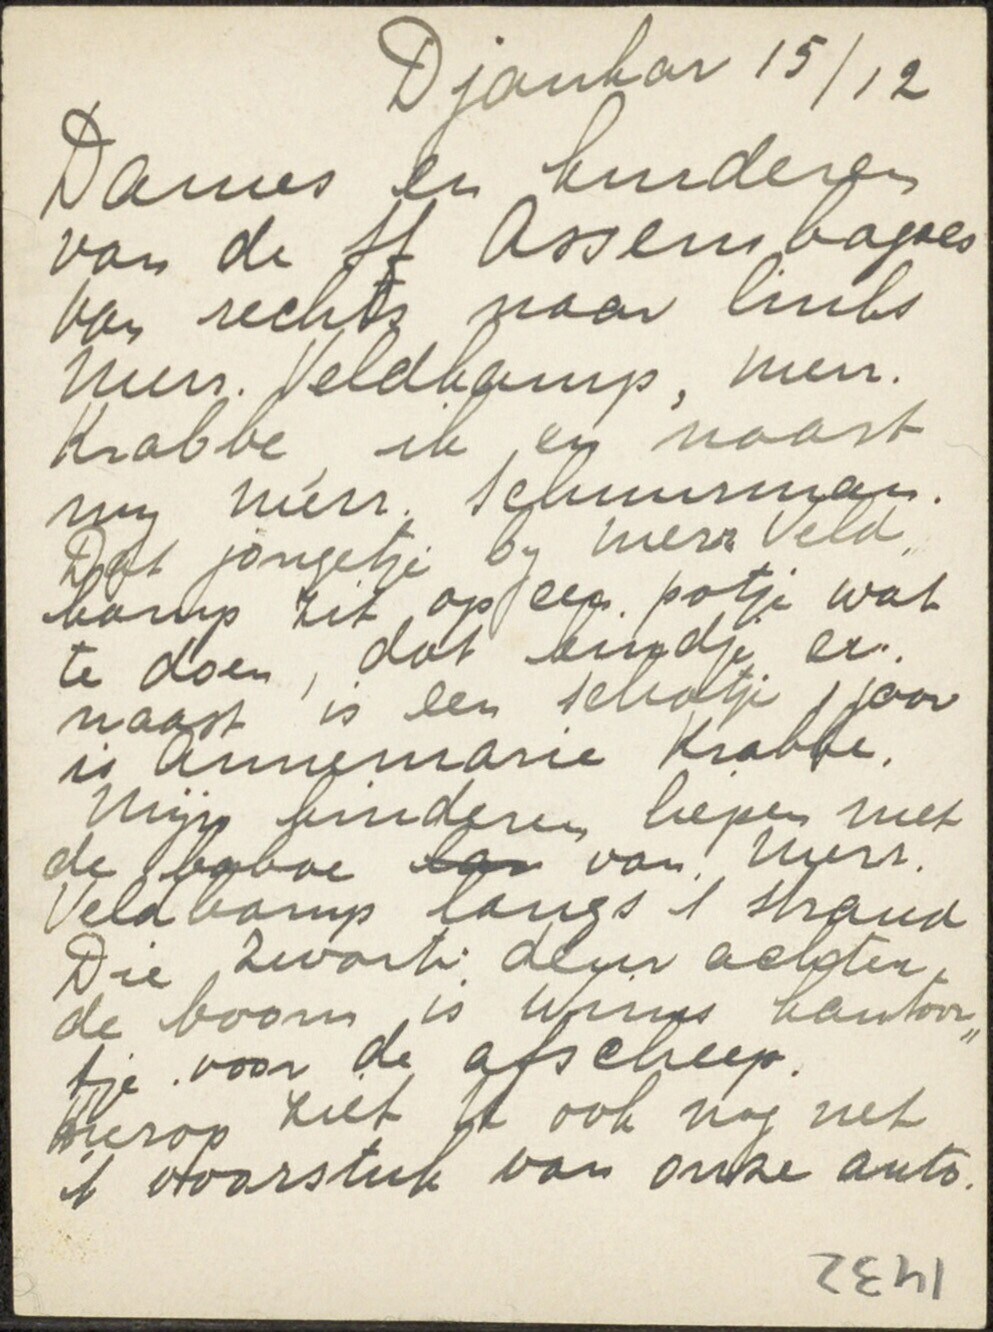 Djankar 15/12
Dames en kinderen
van de ff Assembagoes
van rechts naar links
Mevr. Veldkamp, mevr.
Krabbe, ik en naast
my mevr. Schuurman.
Dat jongetje by mevr Veld„
kamp zit op een potje wat
te doen, dat kindje er„
naast is een schatje 1 jaar
is Annemarie Krabbe.
Mijn kinderen liepen met
de baboe van Mevr.
Veldkamp langs 't strand
Die zwarte deur achter
de boom is Wims kantoor„
tje voor de afscheep.
Hierop ziet U ook nog net
't voorstuk van onze auto.
1432